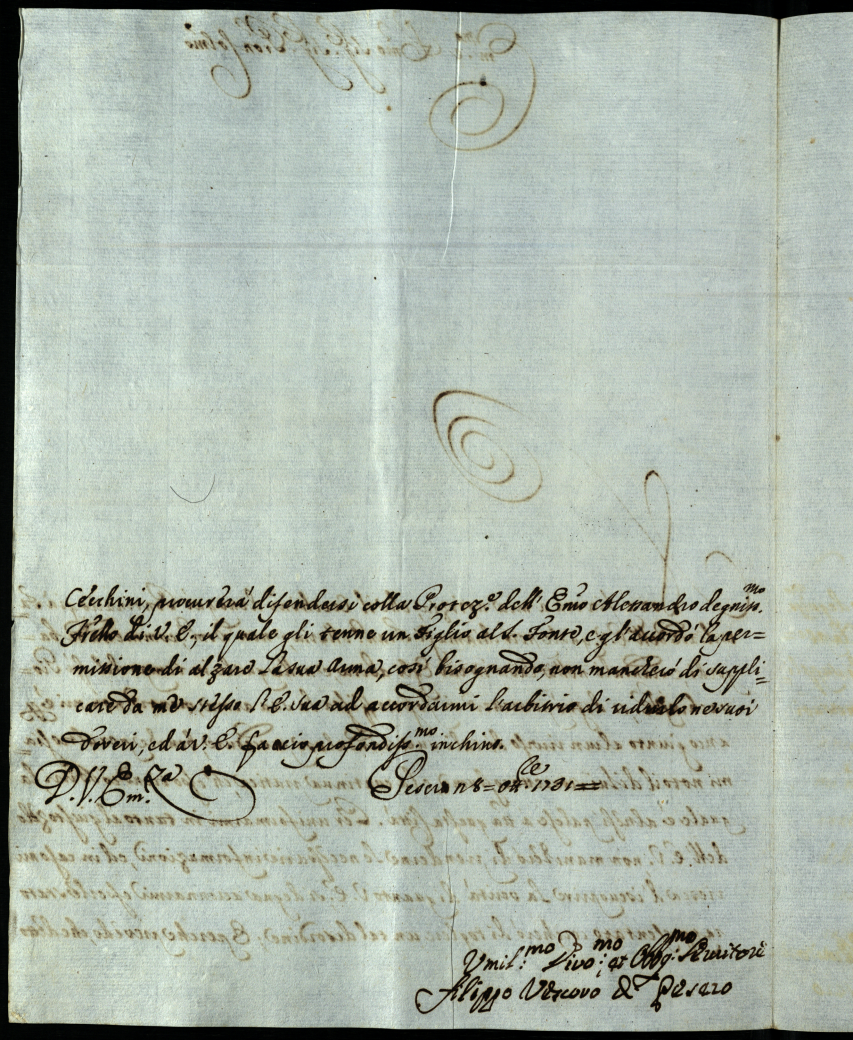 Cecchini, procurerà difendersi colla Protez.e dell' Emo Alessandro degniss.mo
Frello di V. E., il quale gli tenne un Figlio al S. Fonte, e gl'accordò la per=
missione di alzare la sua Arma, così bisognando, non mancherò di suppli=
care da me stesso l'E. Sua ad accordarmi l'arbitrio di ridurlo ne suoi
doveri, ed à V. E. faccio profondiss.mo inchino.
D. V. Em.za Pesaro 8 = Ott.re 1731 =
Umil.mo Divo.mo et Obbg.mo Servitore
Filippo Vescovo di Pesaro